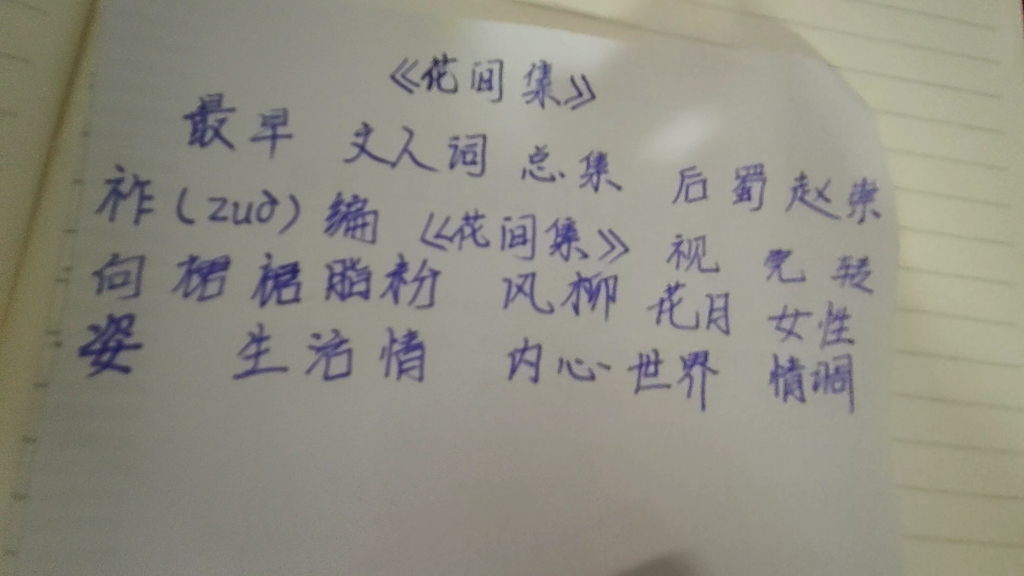 《花间集》
最早 文人词 总集 后蜀赵崇
祚(zuò)编《花间集》视 完 转
向裙裾脂粉 风柳花月 女性
姿 生活情 内心世界 情调